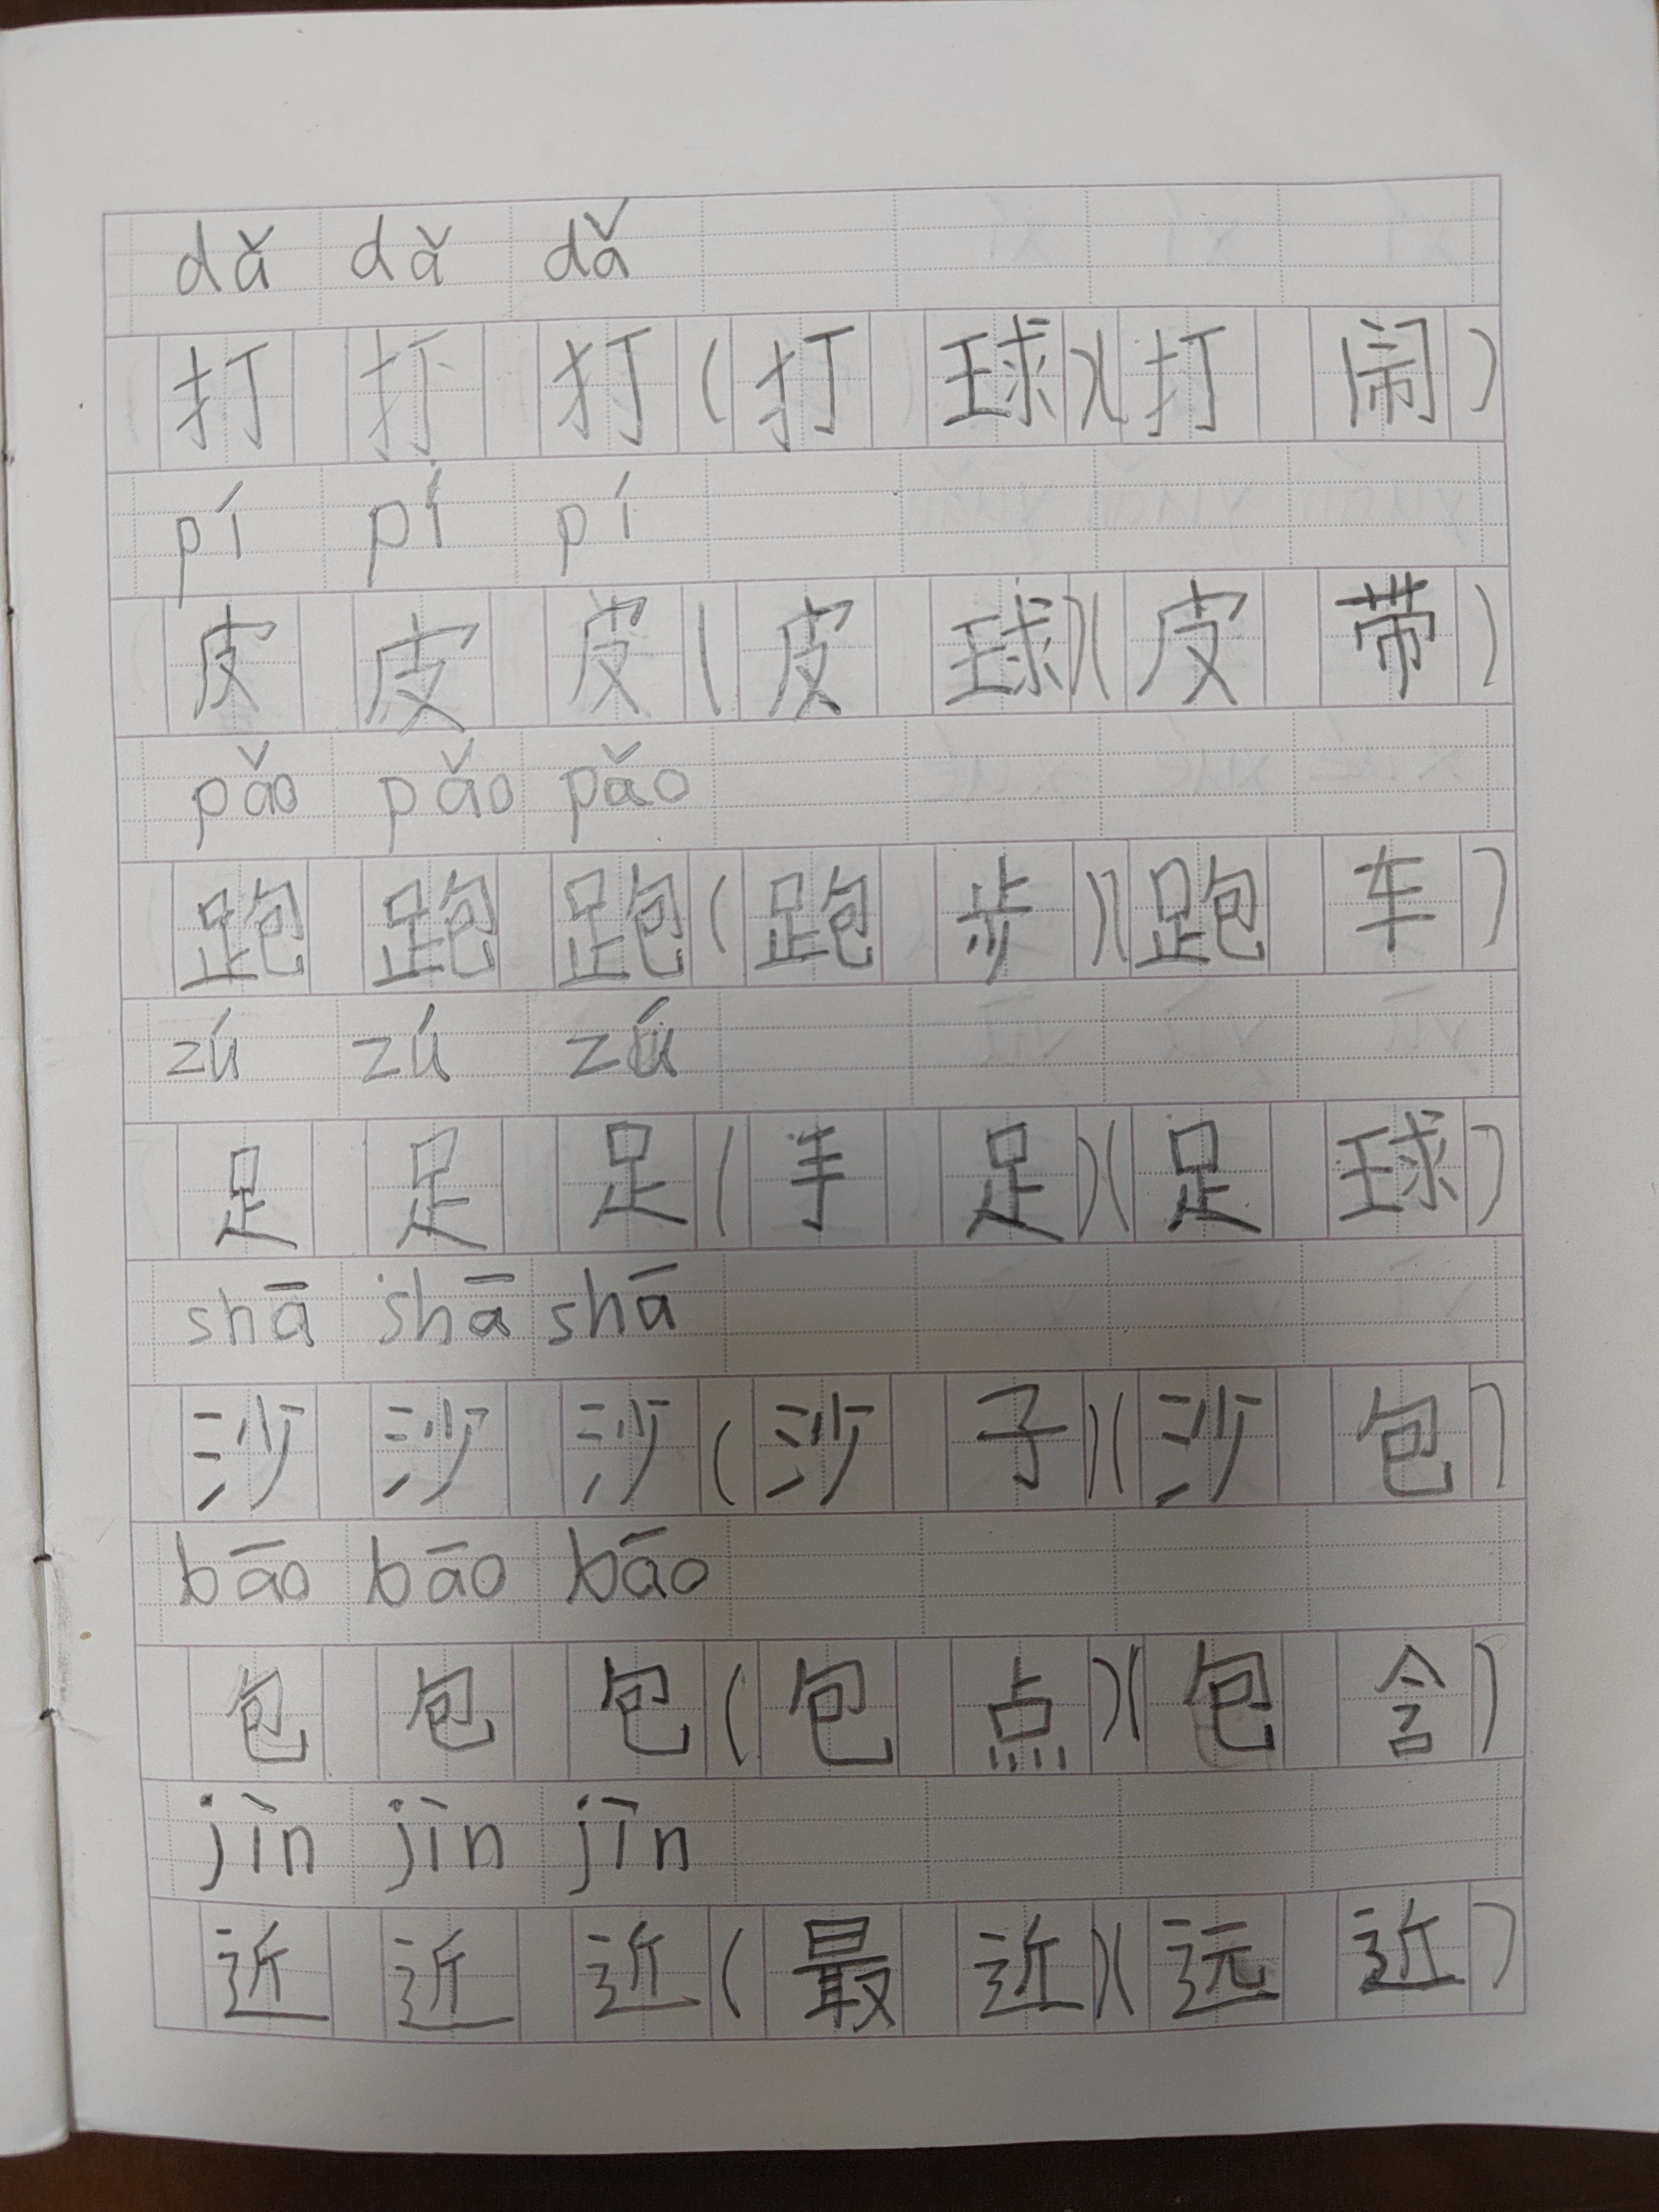 dǎ dǎ dǎ
打 打 打 (打 球)(打 闹)
pí pí pí
皮 皮 皮 (皮 球)(皮 带)
pǎo pǎo pǎo
跑 跑 跑 (跑 步)(跑 车)
zú zú zú
足 足 足 (手 足)(足 球)
shā shā shā
沙 沙 沙 (沙 子)(沙 包)
bāo bāo bāo
包 包 包 (包 点)(包 含)
jìn jìn jìn
近 近 近 (最 近)(远 近)